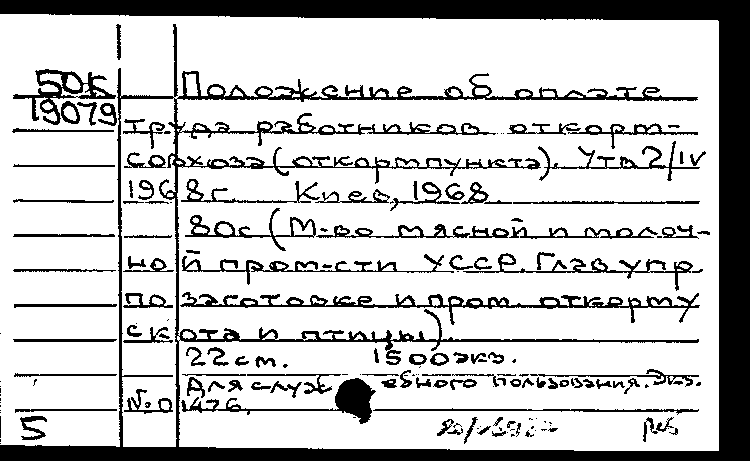 50К Положение об оплате
19079 труда работников откорм-
совхоза (откормпункта). Утв 2/IV
1968г. Киев, 1968.
80с (М-во мясной и молоч-
ной пром-сти УССР. Глав упр.
по заготовке и пром. откорму
скота и птицы).
22см. 1500экз.
Для служебного пользования. Экз.
№01476.
5